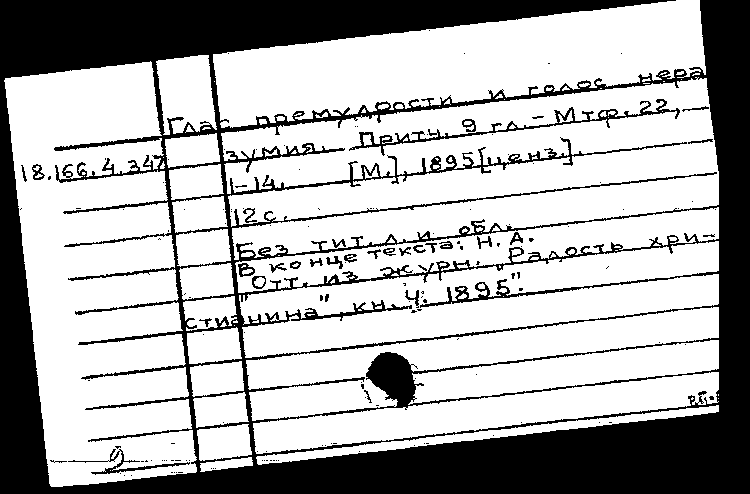 Глас премудрости и голос нера
18.166.4.347 зумия. Притч. 9 гл. - Мтф. 22,
1-14. [М.], 1895 [ценз.].
12 с.
Без тит. л. и обл.
В конце текста: Н. А.
"Отт. из журн. "Радость хри-
стианина", кн. 4. 1895".
9